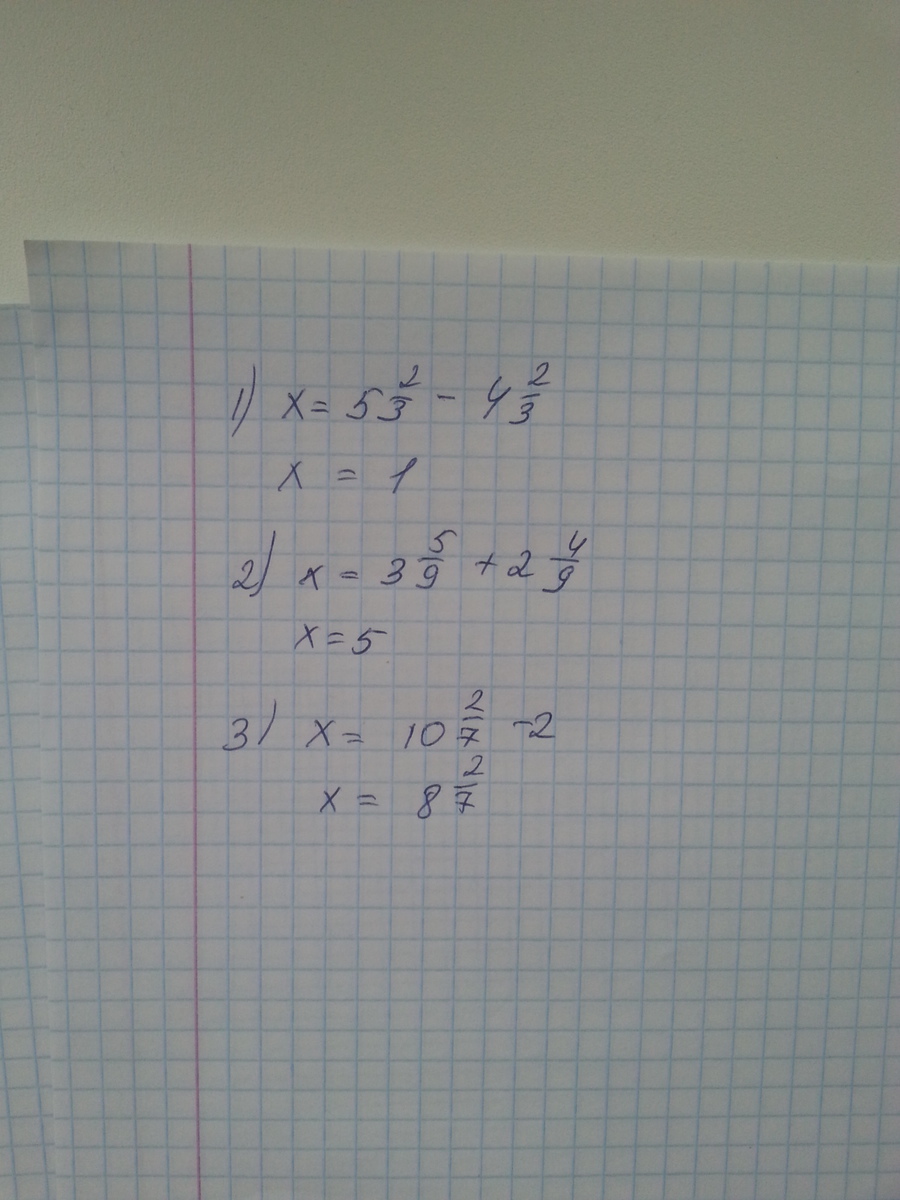 1) x = 5 2/3 - 4 2/3
x = 1
2) x = 3 5/9 + 2 4/9
x = 5
3) x = 10 2/7 - 2
x = 8 2/7